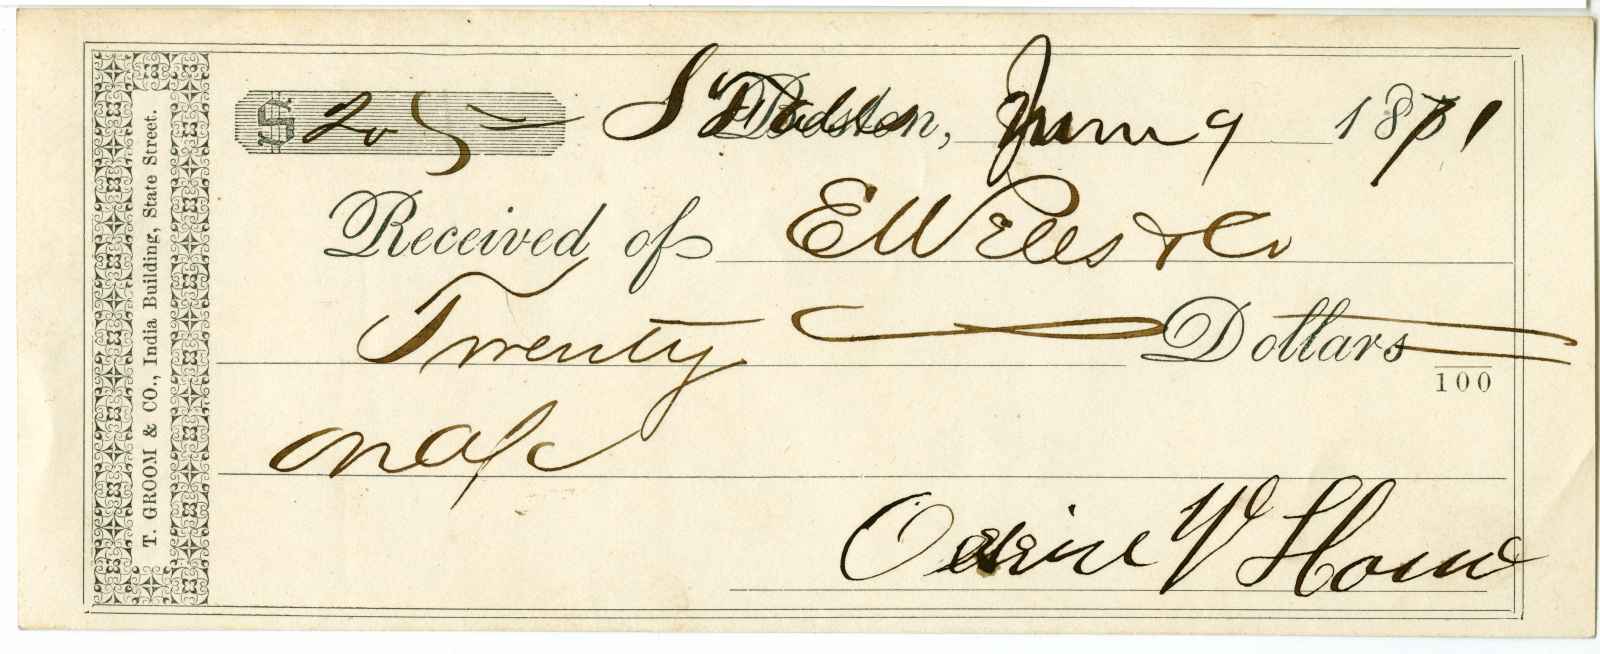 $ 20
Boston, June 9 1871
Received of E W & Co
Twenty Dollars
100
on a/c
W
T. GROOM & CO., India Building, State Street.